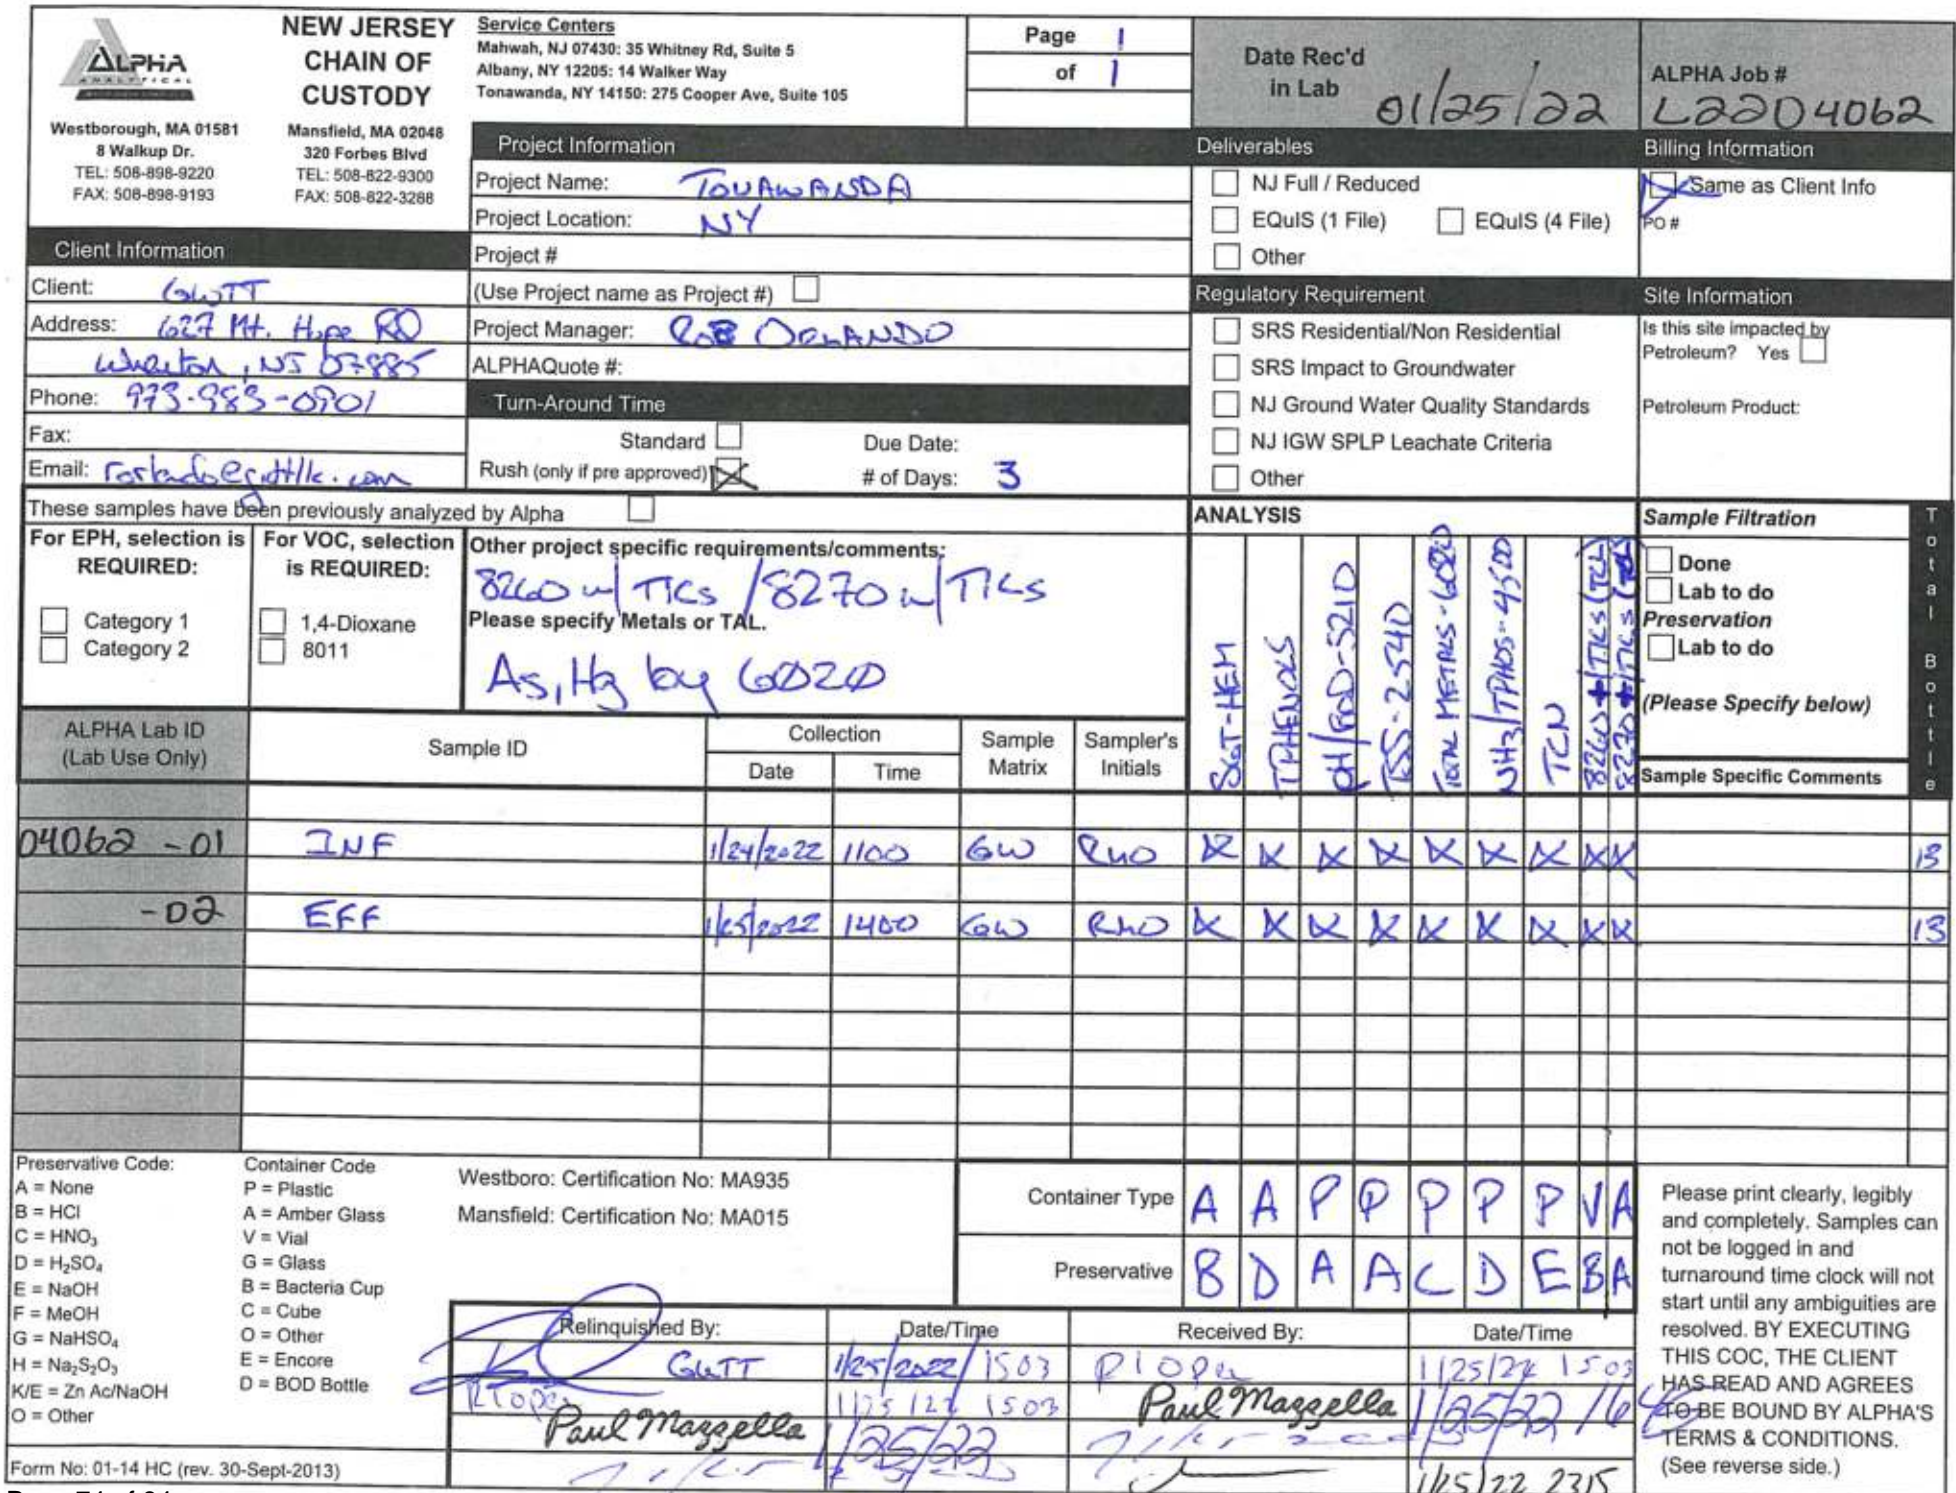 ALPHA
ANALYTICAL
Westborough, MA 01581
8 Walkup Dr.
TEL: 508-898-9220
FAX: 508-898-9193
NEW JERSEY
CHAIN OF
CUSTODY
Mansfield, MA 02048
320 Forbes Blvd
TEL: 508-822-9300
FAX: 508-822-3288
Service Centers
Mahwah, NJ 07430: 35 Whitney Rd, Suite 5
Albany, NY 12205: 14 Walker Way
Tonawanda, NY 14150: 275 Cooper Ave, Suite 105
Page 1
of 1
Date Rec'd
in Lab 01/25/22
ALPHA Job #
L2204062
Project Information
Project Name: TONAWANDA
Project Location: NY
Project #
(Use Project name as Project #)
Project Manager: ROB ORLANDO
ALPHAQuote #:
Deliverables
NJ Full / Reduced
EQuIS (1 File) EQuIS (4 File)
Other
Billing Information
Same as Client Info
PO #
Client Information
Client: GWTT
Address: 627 Mt. Hope RD
Wharton, NJ 07885
Phone: 973-983-0901
Fax:
Email:
Turn-Around Time
Standard Due Date:
Rush (only if pre approved) # of Days: 3
Regulatory Requirement
SRS Residential/Non Residential
SRS Impact to Groundwater
NJ Ground Water Quality Standards
NJ IGW SPLP Leachate Criteria
Other
Site Information
Is this site impacted by
Petroleum? Yes
Petroleum Product:
These samples have been previously analyzed by Alpha
For EPH, selection is
REQUIRED:
Category 1
Category 2
For VOC, selection
is REQUIRED:
1,4-Dioxane
8011
Other project specific requirements/comments:
8260 w/ TICs / 8270 w/ TICs
Please specify Metals or TAL.
As, Hg by 6020
ANALYSIS
SGT-HEM
TPHENOLS
pH/BOD-5210
TSS-2540
TOTAL METALS-6020
NH3/TPHOS-4500
TCN
8260+/TICs (TCL)
8270+/TICs
Sample Filtration
Done
Lab to do
Preservation
Lab to do
(Please Specify below)
Total Bottle
ALPHA Lab ID
(Lab Use Only)
Sample ID
Collection
Date Time
Sample
Matrix
Sampler's
Initials
Sample Specific Comments
04062 -01 INF 1/24/2022 1100 GW RHO X X X X X X X X X 13
-02 EFF 1/25/2022 1400 GW RHO X X X X X X X X X 13
Preservative Code:
A = None
B = HCl
C = HNO3
D = H2SO4
E = NaOH
F = MeOH
G = NaHSO4
H = Na2S2O3
K/E = Zn Ac/NaOH
O = Other
Container Code
P = Plastic
A = Amber Glass
V = Vial
G = Glass
B = Bacteria Cup
C = Cube
O = Other
E = Encore
D = BOD Bottle
Westboro: Certification No: MA935
Mansfield: Certification No: MA015
Container Type A A P P P P P V A
Preservative B D A A C D E B A
Relinquished By: Date/Time Received By: Date/Time
GWTT 1/25/2022 / 1503 1/25/22 1503
1/25/22 1503 Paul Mazzella 1/25/22
Paul Mazzella 1/25/22
1/25/22 2315
Please print clearly, legibly
and completely. Samples can
not be logged in and
turnaround time clock will not
start until any ambiguities are
resolved. BY EXECUTING
THIS COC, THE CLIENT
HAS READ AND AGREES
TO BE BOUND BY ALPHA'S
TERMS & CONDITIONS.
(See reverse side.)
Form No: 01-14 HC (rev. 30-Sept-2013)